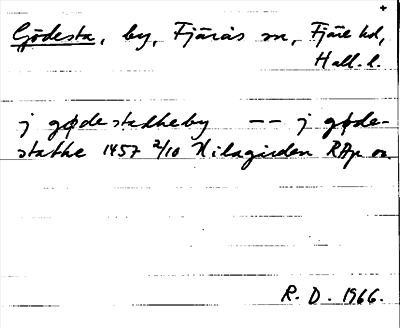 +
Gödesta, by, Fjärås sn, Fjäre hd,
Hall. l.
j gødestadheby -- j gøde-
stathe 1457 2/10 Hilagården RAp or.
R. D. 1966.